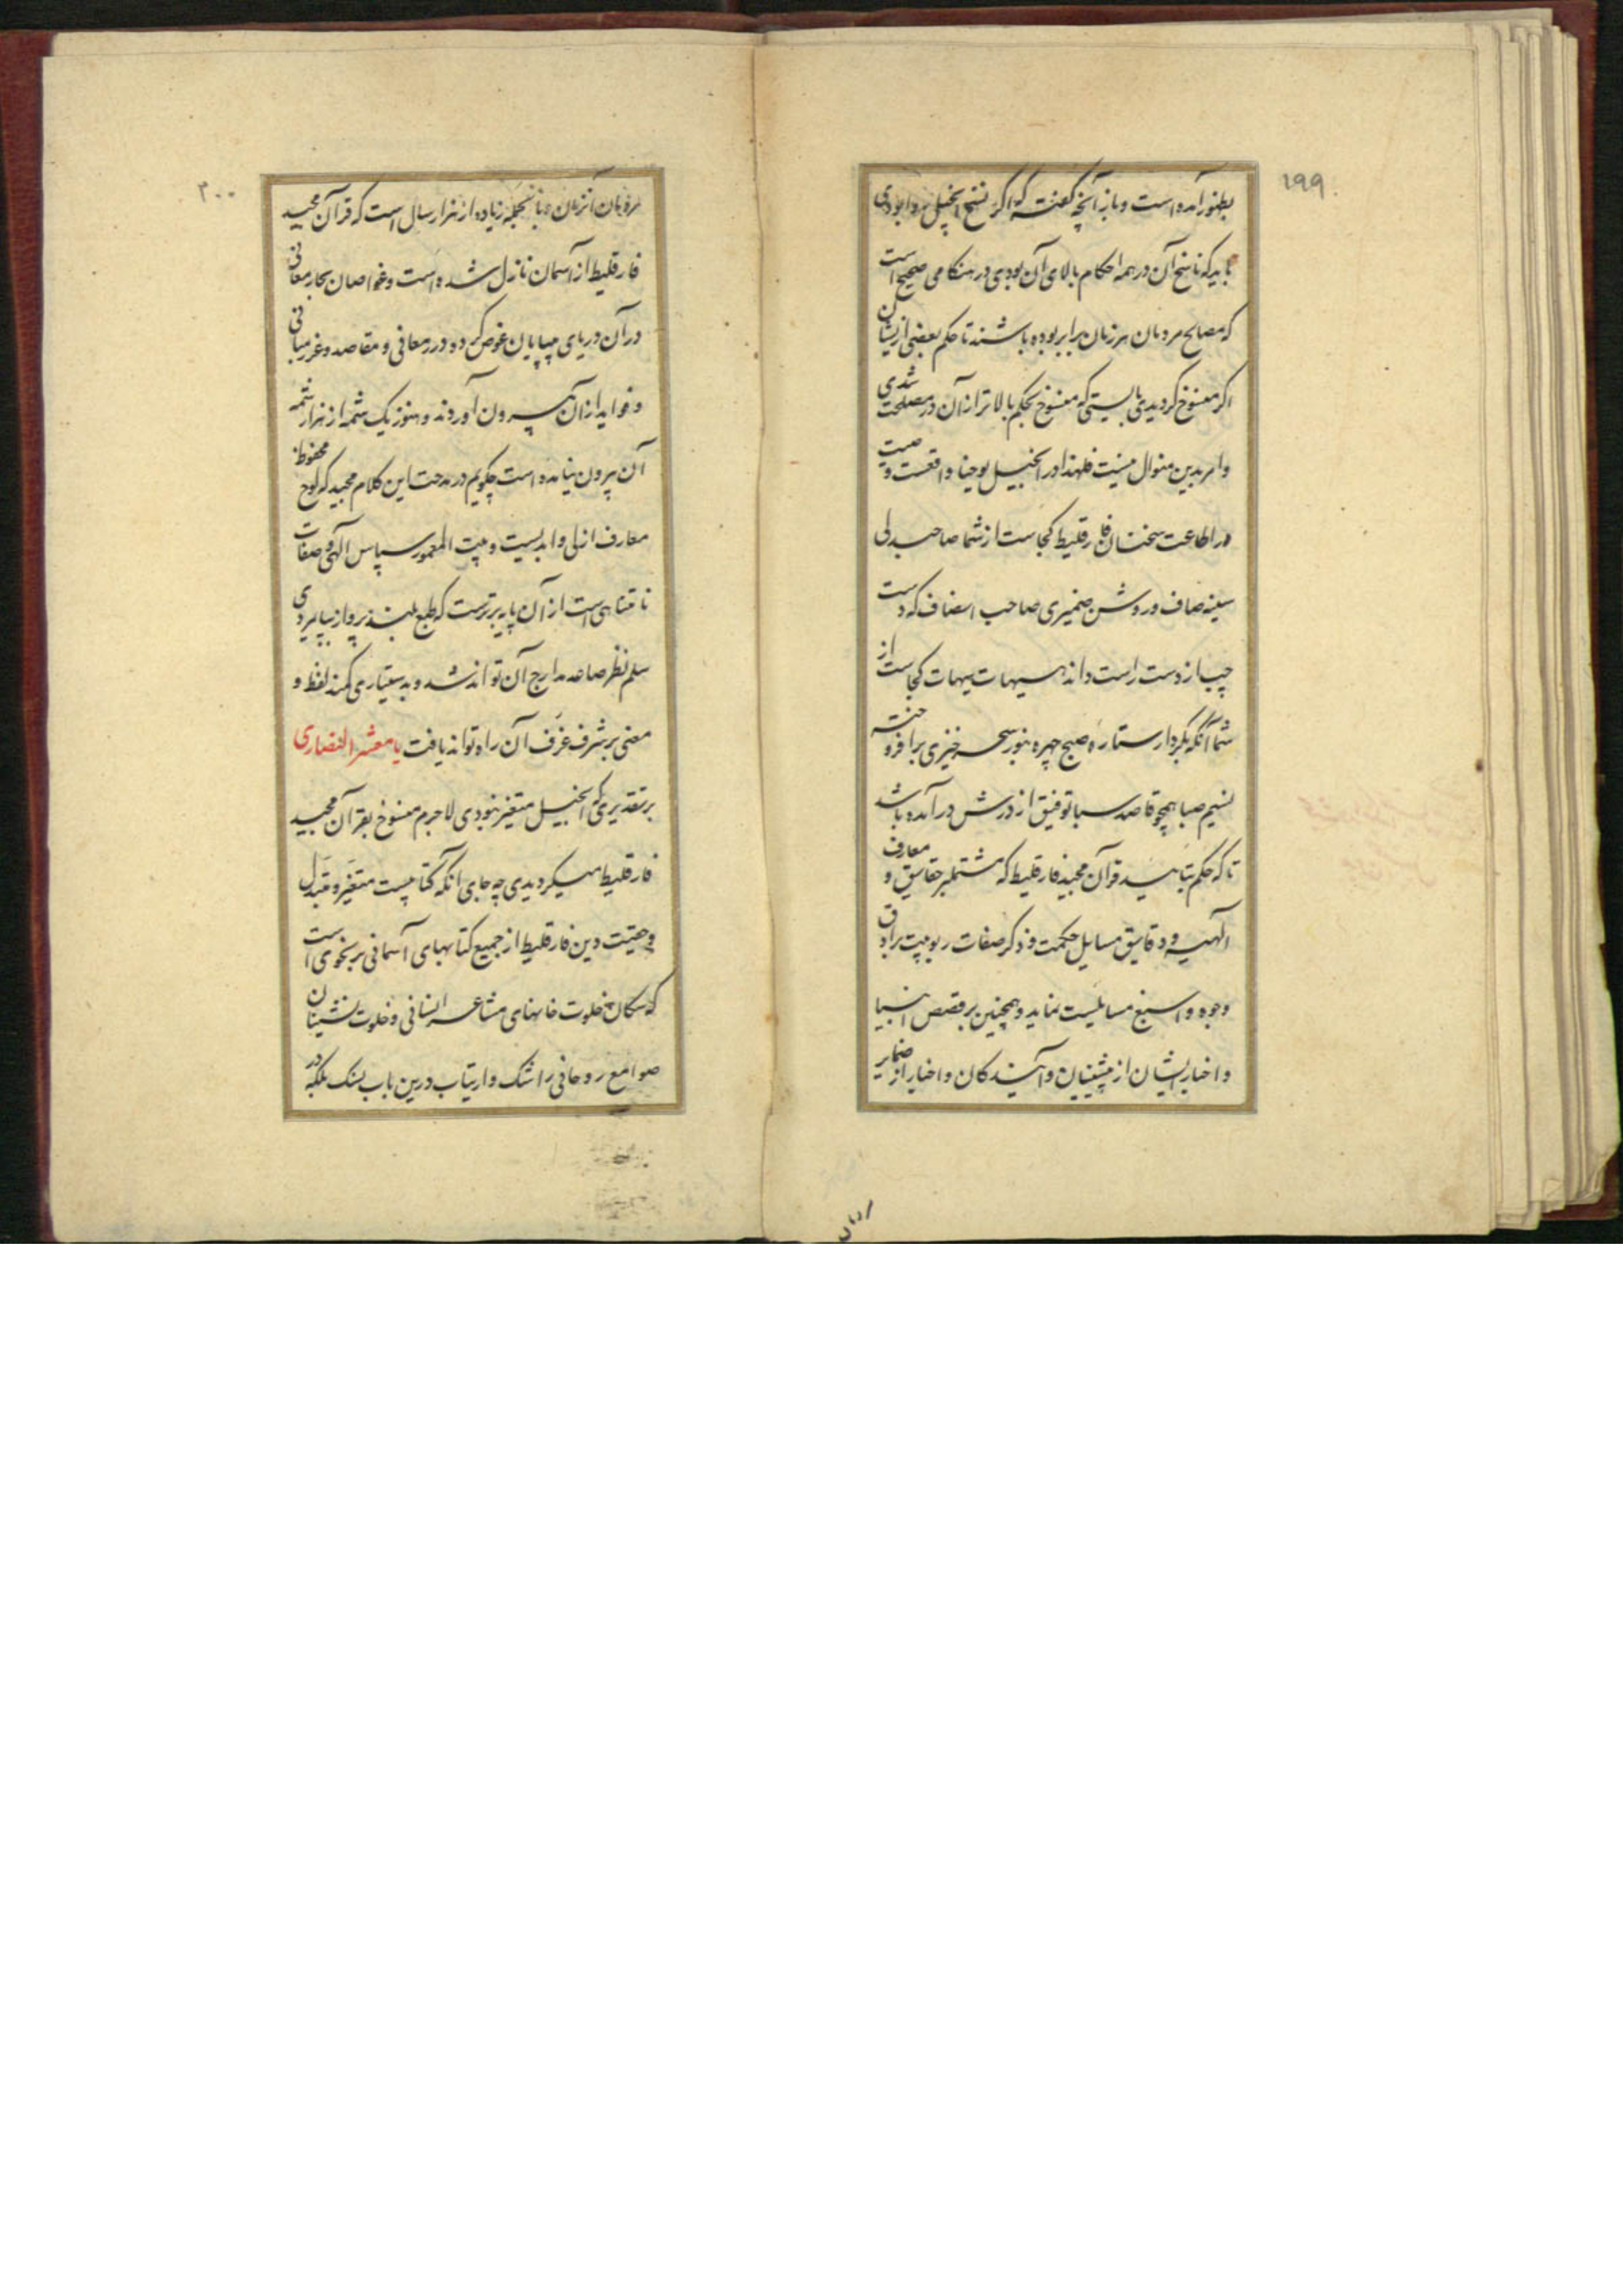 ۱۹۹
بظهور آمده است و باز آنچه گفته که اگر نسخ انجیل روا بودی
باید که ناسخ آن در همه احکام بالای آن بودی در هنگامی صحیح است
که مصالح مردمان هر زمان برابر بوده باشند تا حکم بعضی ازیشان
اگر منسوخ گردیدی بایستی که منسوخ بحکم بالاتر از آن در مصلحت شدی
و امر بدین منوال نیست فلهذا در انجیل یوحنا واقعست وصیت
در اطاعت سخنان فارقلیط کجاست از شما صاحبدلی
سینه صاف و روشن ضمیری صاحب انصاف که دست
چپ از دست راست داند هیهات هیهات کجاست از
شما آنکه بکردار ستاره صبح چهره بنور سحر خیزی برافروخته
نسیم صبا همچو قاصد سبا توفیق از درش در آمده باشد
تا که حکم بتأیید قرآن مجید فارقلیط که مشتملبر حقایق و معارف
الهیه و دقایق مسایل حکمت و ذکر صفات ربوبیت بر ادق
وجوه و اسبغ مسایلست نماید و همچنین بر قصص انبیا
و اخبار ایشان از پیشینیان و آیندکان و اخبار از ضمایر
۲۰۰
مردمان آنزمان و بالجمله زیاده از هزار سال است که قرآن مجید
فارقلیط از آسمان نازل شده است و غواصان بحار معانی
در آن دریای بیپایان غوص کرده درر معانی و مقاصد و غرر مبانی
و فواید از آن بیرون آوردند و هنوز یک شمه از هزار شمه
آن بیرون نیامده است چکویم در مدحت این کلام مجید که لوح محفوظ
معارف ازلی و ابدیست و بیت المعمور سپاس الهی و صفات
نامتناهی است از آن پایه برترست که طبع بلند پرواز بپایمردی
سلم نظر صاعد مدارج آن تواند شد و بدستیاری کمند لفظ و
معنی بر شرف غرف آن راه تواند یافت یا معشر النصاری
بر تقدیری که انجیل متغیر نبودی لاجرم منسوخ بقرآن مجید
فارقلیط میکردیدی چه جای آنکه کتابیست متغیر و متبدل
و حقیت دین فارقلیط از جمیع کتابهای آسمانی بر نحوی است
که سکان خلوت خانهای مشاعر انسانی و خلوت نشینان
صوامع روحانی را شک و ارتیاب درین باب نیست بلکه در